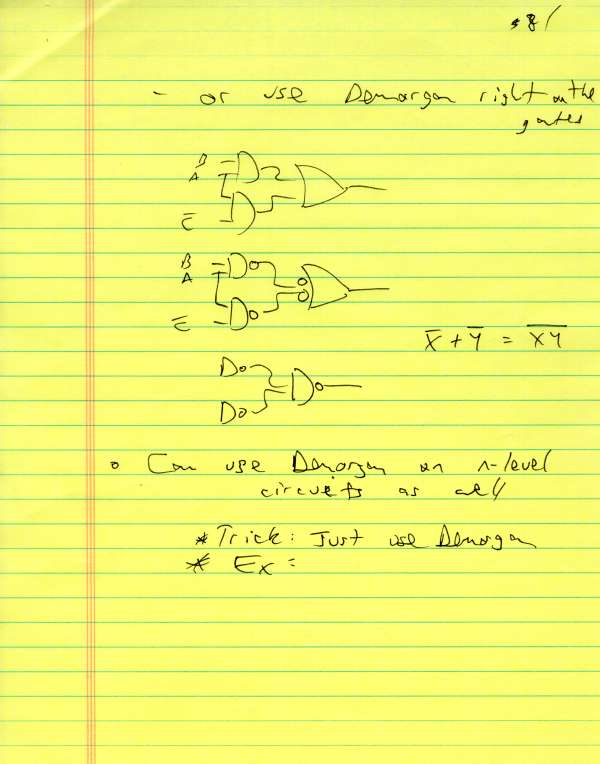 8/
- or use Demorgan right on the
gates
B
A
C̅
B
A
C̅
X̅ + Y̅ = X̅Y̅
o Can use Demorgan on n-level
circuits as well
* Trick: Just use Demorgan
* Ex: